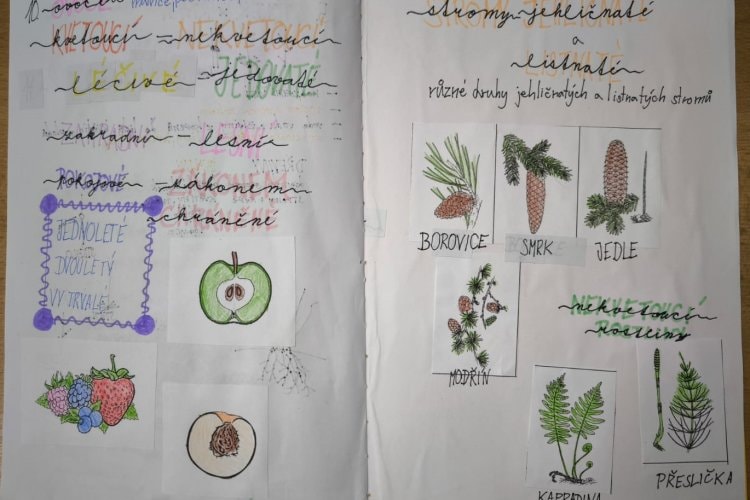 ovocí
kvetoucí = nekvetoucí
léčivé – jedovaté
zahradní – lesní
pokojové – zákonem
chráněné
JEDNOLETÉ
DVOULETÝ
VYTRVALÉ
stromy jehličnaté
a
listnaté
různé druhy jehličnatých a listnatých stromů
BOROVICE SMRK JEDLE
MODŘÍN
nekvetoucí
rostliny
KAPRADINA
PŘESLIČKA